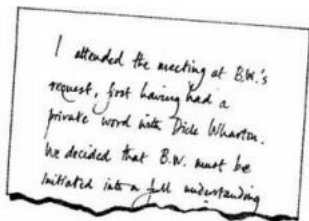 I attended the meeting at B.W.'s
request, first having had a
private word with Dick Wharton.
We decided that B.W. must be
initiated into a full understanding